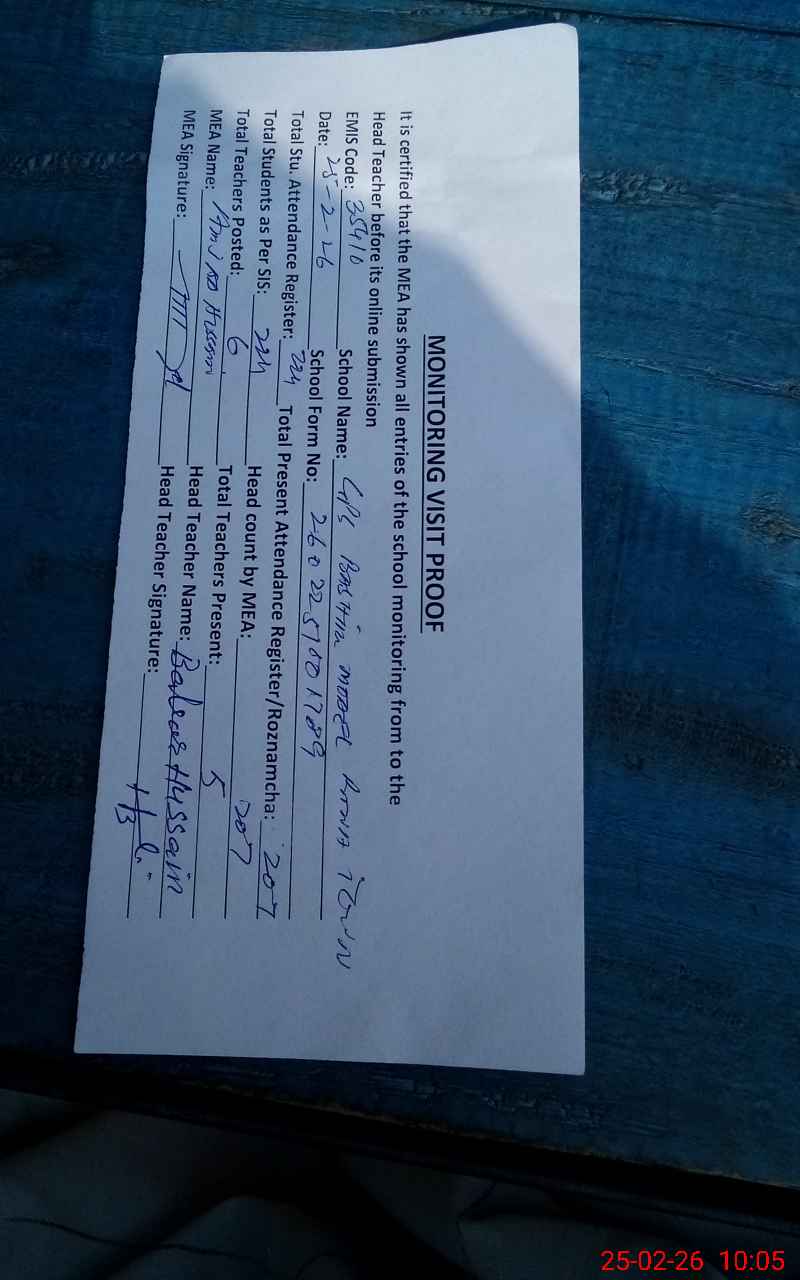 MONITORING VISIT PROOF
It is certified that the MEA has shown all entries of the school monitoring from to the
Head Teacher before its online submission
EMIS Code: 35910 School Name: GPS MODEL TOWN
Date: 25-2-26 School Form No:
Total Stu. Attendance Register: 224 Total Present Attendance Register/Roznamcha: 207
Total Students as Per SIS: 224 Head count by MEA: 207
Total Teachers Posted: 6 Total Teachers Present: 5
MEA Name: Amjad Hussain Head Teacher Name: Hussain
MEA Signature: Head Teacher Signature:
25-02-26 10:05